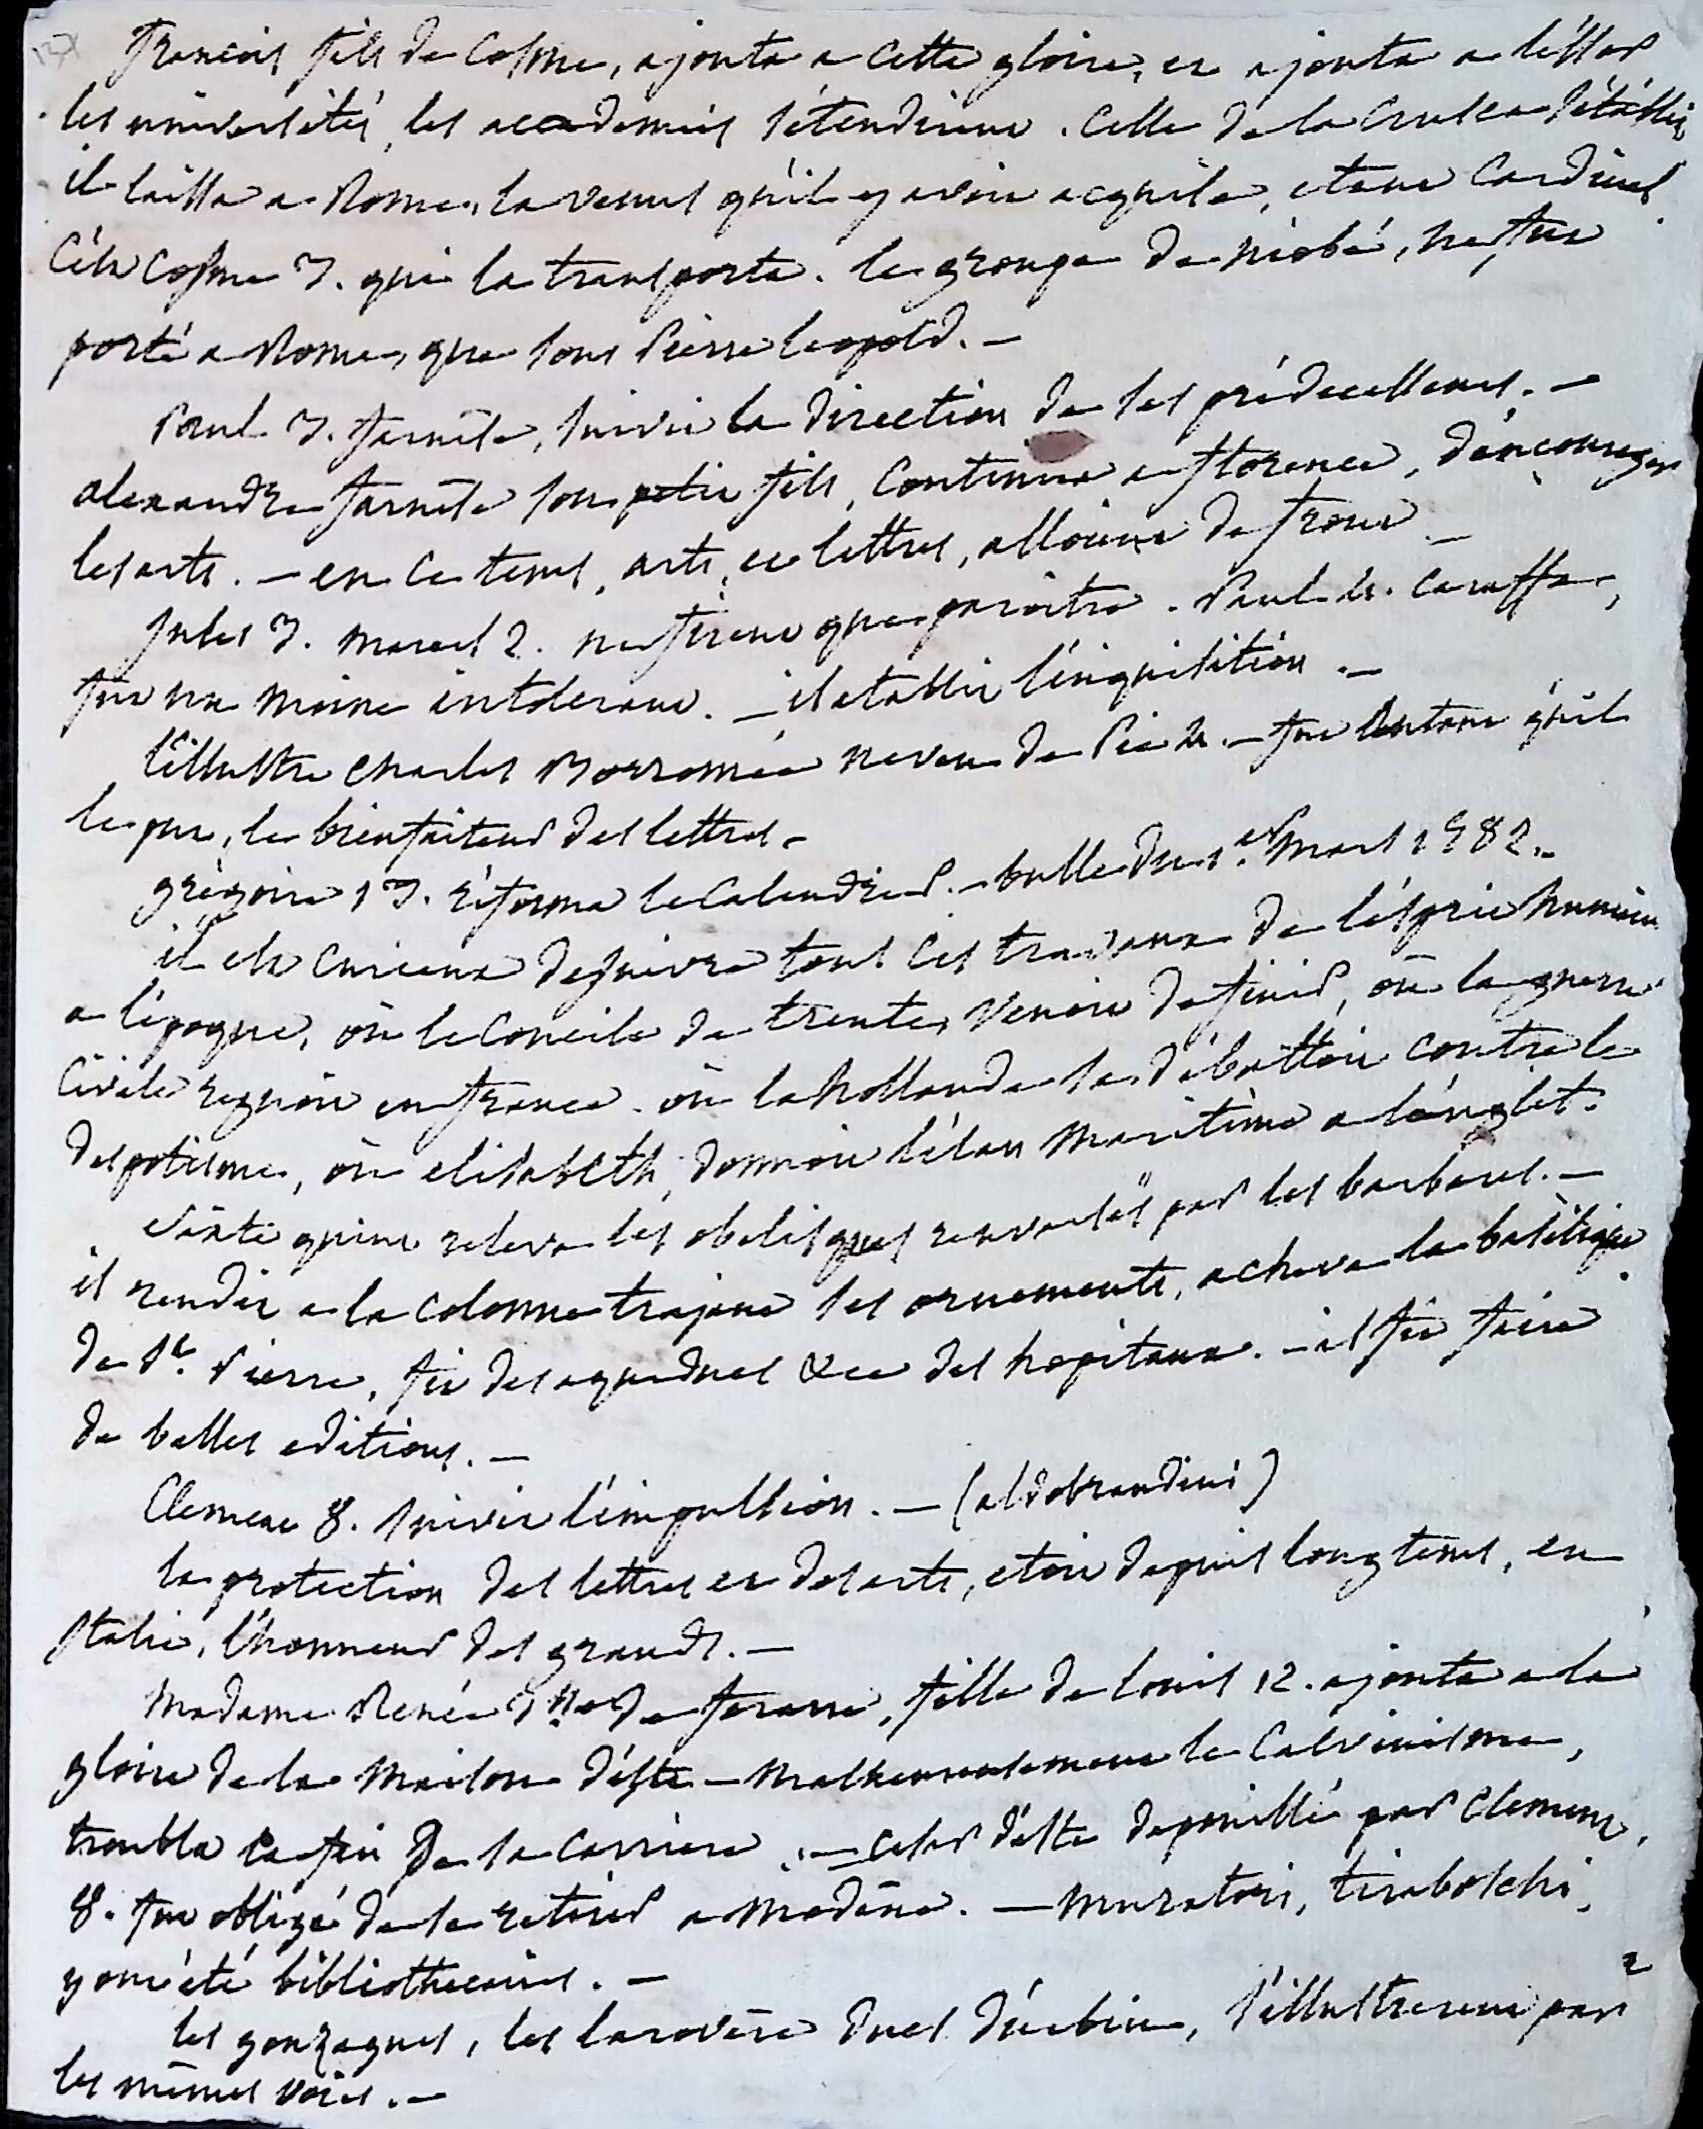 François fils de Cosme, ajouta a cette gloire, et ajouta a l'essor
les universités, les academies s'étendirent. Celle de la Crusca s'établit
il laissa a Rome, la venus qu'il y avoit acquise, etant Cardinal
C'est Cosme 3. qui la transporta. le groupe de niobé, ne fut
porté a Rome, que sous Pierre leopold. —
Paul 3. farnèse, suivit la direction de ses prédecesseurs. —
alexandre farnèse son petit fils, continua a florence, d'encourager
les arts. — en ce tems, arts, et lettres, alloient de front —
Jules 3. marcel 2. ne firent que paroitre. Paul 4. Caraffe,
fut un moine intolerant. — il etablit l'inquisition. —
l'illustre Charles Borromée neveu de Pie 4. — fut autant qu'il
le put, le bienfaiteur des lettres —
grégoire 13. réforma le Calendrier. — bulle du 1er mars 1582. —
il est curieux de suivre tous ces travaux de l'esprit humain
a l'époque, où le Concile de trente, venoit de finir, où la guerre
Civile regnoit en france. où la hollande se débattoit contre le
despotisme, où elisabeth, donnoit l'élan maritime a l'anglet.
Sixte quint releva les obelisques renversés par les barbares. —
il rendit a la colonne trajane ses ornements, acheva la basilique
de St. Pierre, fit des aqueducs &ca des hopitaux. — il fit faire
de belles editions. —
Clement 8. suivit l'impulsion. — (aldobrandini)
la protection des lettres et des arts, etoit depuis longtems, en
Italie, l'honneur des grands. —
Madame Renée dsse de ferarre, fille de louis 12. ajouta a la
gloire de la maison d'este — malheureusement le Calvinisme,
troubla la fin de sa carriere. — César d'este depouillé par Clement
8. fut obligé de se retirer a modène. — muratori, tiraboschi,
y ont été bibliothecaires. —
les gonzagues, les larovère ducs d'urbin, s'illustrerent par
les mêmes voies. —